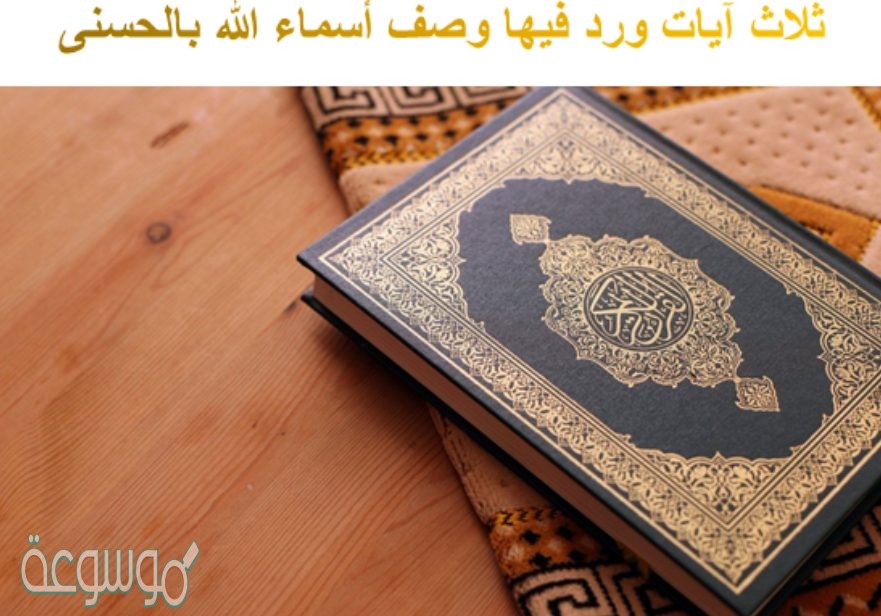 ثلاث آيات ورد فيها وصف أسماء الله بالحسنى
القرآن الكريم
موسوعة